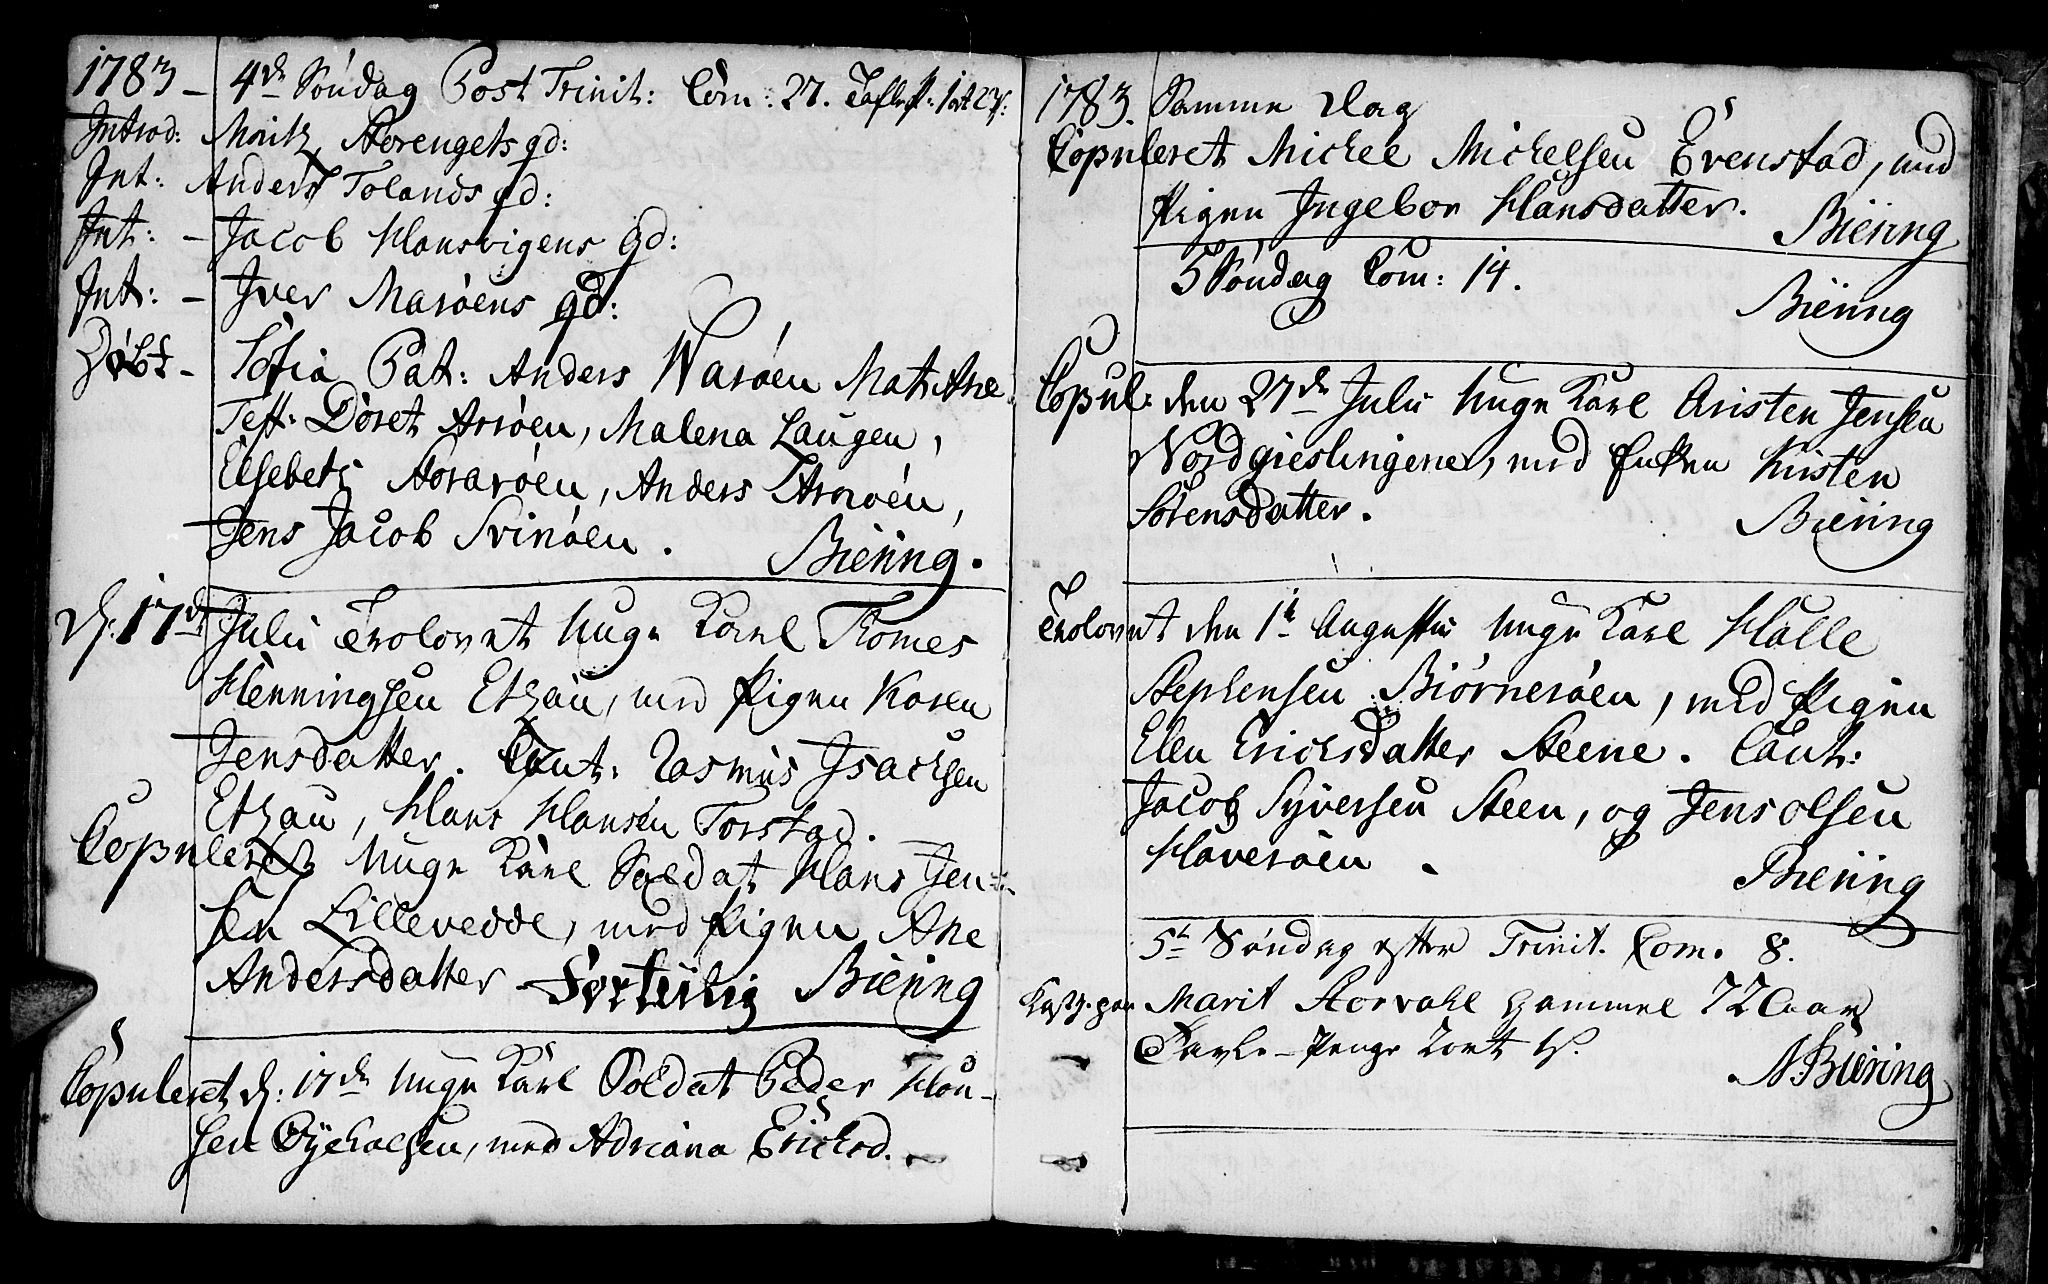 1783 – 4de Söndag Post Trinit: Com: 27.
Introd: Moritz Storengets qd:
Int: Anders Tolands qd:
Int: – Jacob Hansvigens qd:
Int: – Iver Marøens qd:
Döbt – Sofia Pat: Anders Warøen Mat: Ane
Test: Doret Arsøen, Malena Laugen,
Elsebets Aararøen, Anders
Jens Jacob Svinøen. Biering.
d: 17de Julii Trolovet Unge Karl Tomes
Henningsen Etzau, med Pigen Karen
Jensdatter. Caut: Rasmus Isachsen
Etzau, Hans Hansen Torstad.
Copuleret Unge Karl Soldat Hans Jen-
sen Lillevedde, med Pigen Ane
Andersdatter Biering
Copuleret d: 17de Unge Karl Soldat Peder Han-
sen med Adriana Ericksd.
1783. Samme Dag
Copuleret Mickel Mickelsen Evenstad, med
Pigen Ingebor Hansdatter. Biering
5 Söndag Com: 14.
Biering
Copul: den 27de Julii Unge Karl Cristen Jensen
Nordgieslingene, med Enken Kirsten
Sörensdatter. Biering
Trolovet den 1te Augustii Unge Karl Halle
Stephensen Biørnerøen, med Pigen
Elen Ericksdatter Steene. Caut:
Jacob Syversen Steen, og Jens Olsen
Haverøen. Biering
5te Søndag efter Trinit. Com. 8.
Marit Storvahl Gammel 72 Aar
Tavle-Penge
N Biering